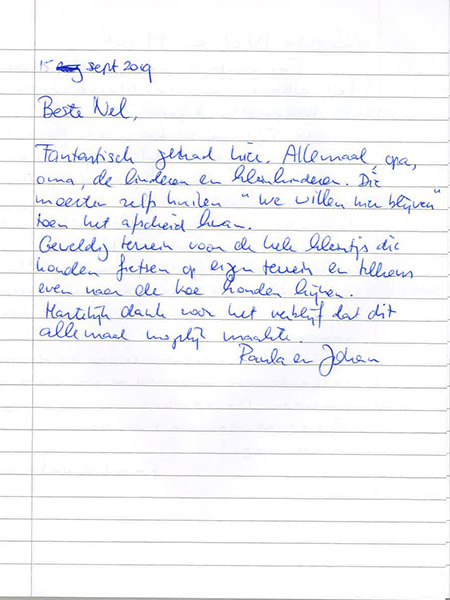 15 sept 2019
Beste Nel,
Fantastisch gehad hier. Allemaal, opa,
oma, de kinderen en kleinkinderen. Die
moesten zelfs huilen "We willen hier blijven"
toen het afscheid kwam.
Geweldig terrein voor de hele kleintjes die
konden fietsen op eigen terrein en telkens
even naar de koe konden kijken.
Hartelijk dank voor het verblijf dat dit
allemaal mogelijk maakte.
Paula en Johan